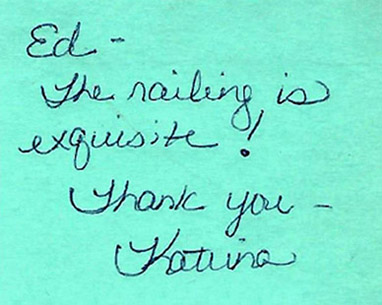 Ed -
The railing is
exquisite!
Thank you -
Katrina